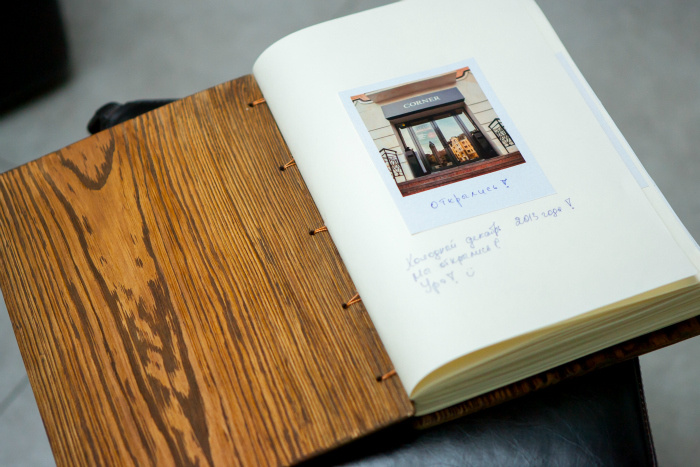 CORNER
Открылись!
Холодный декабрь 2013 года!
Мы открылись!
Ура! :)